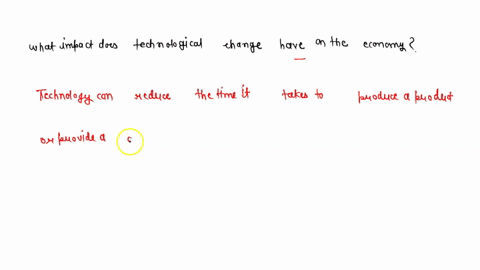 what impact does technological change have on the economy?
Technology can reduce the time it takes to produce a product
or provide a